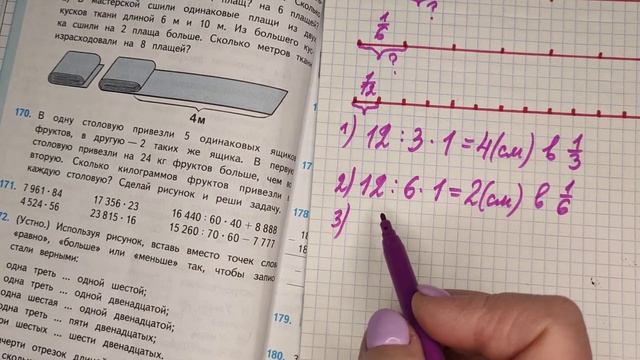 В мастерской сшили одинаковые плащи из двух
кусков ткани длиной 6 м и 10 м. Из большего кус-
ка сшили на 2 плаща больше. Сколько метров ткани
израсходовали на 8 плащей?
4м
170. В одну столовую привезли 5 одинаковых ящиков
фруктов, в другую — 2 таких же ящика. В первую
столовую привезли на 24 кг фруктов больше, чем во
вторую. Сколько килограммов фруктов привезли в
каждую столовую? Сделай рисунок и реши задачу.
171. 7 961 · 84 17 356 · 23 16 440 : 60 · 40 + 8 888
4 524 · 56 23 815 · 16 15 260 : 70 · 60 − 7 777
72. (Устно.) Используя рисунок, вставь вместо точек слова
«равно», «больше» или «меньше» так, чтобы запо
стали верными:
одна треть ... одной шестой;
одна треть ... одной двенадцатой;
одна шестая ... одной двенадцатой;
одна треть ... пяти двенадцатых;
три шестых ... шести двенадцатых.
черти отрезок длиной
178
179.
180.
?
1/6
?
1/12
1) 12 : 3 · 1 = 4 (см) в 1/3
2) 12 : 6 · 1 = 2 (см) в 1/6
3)